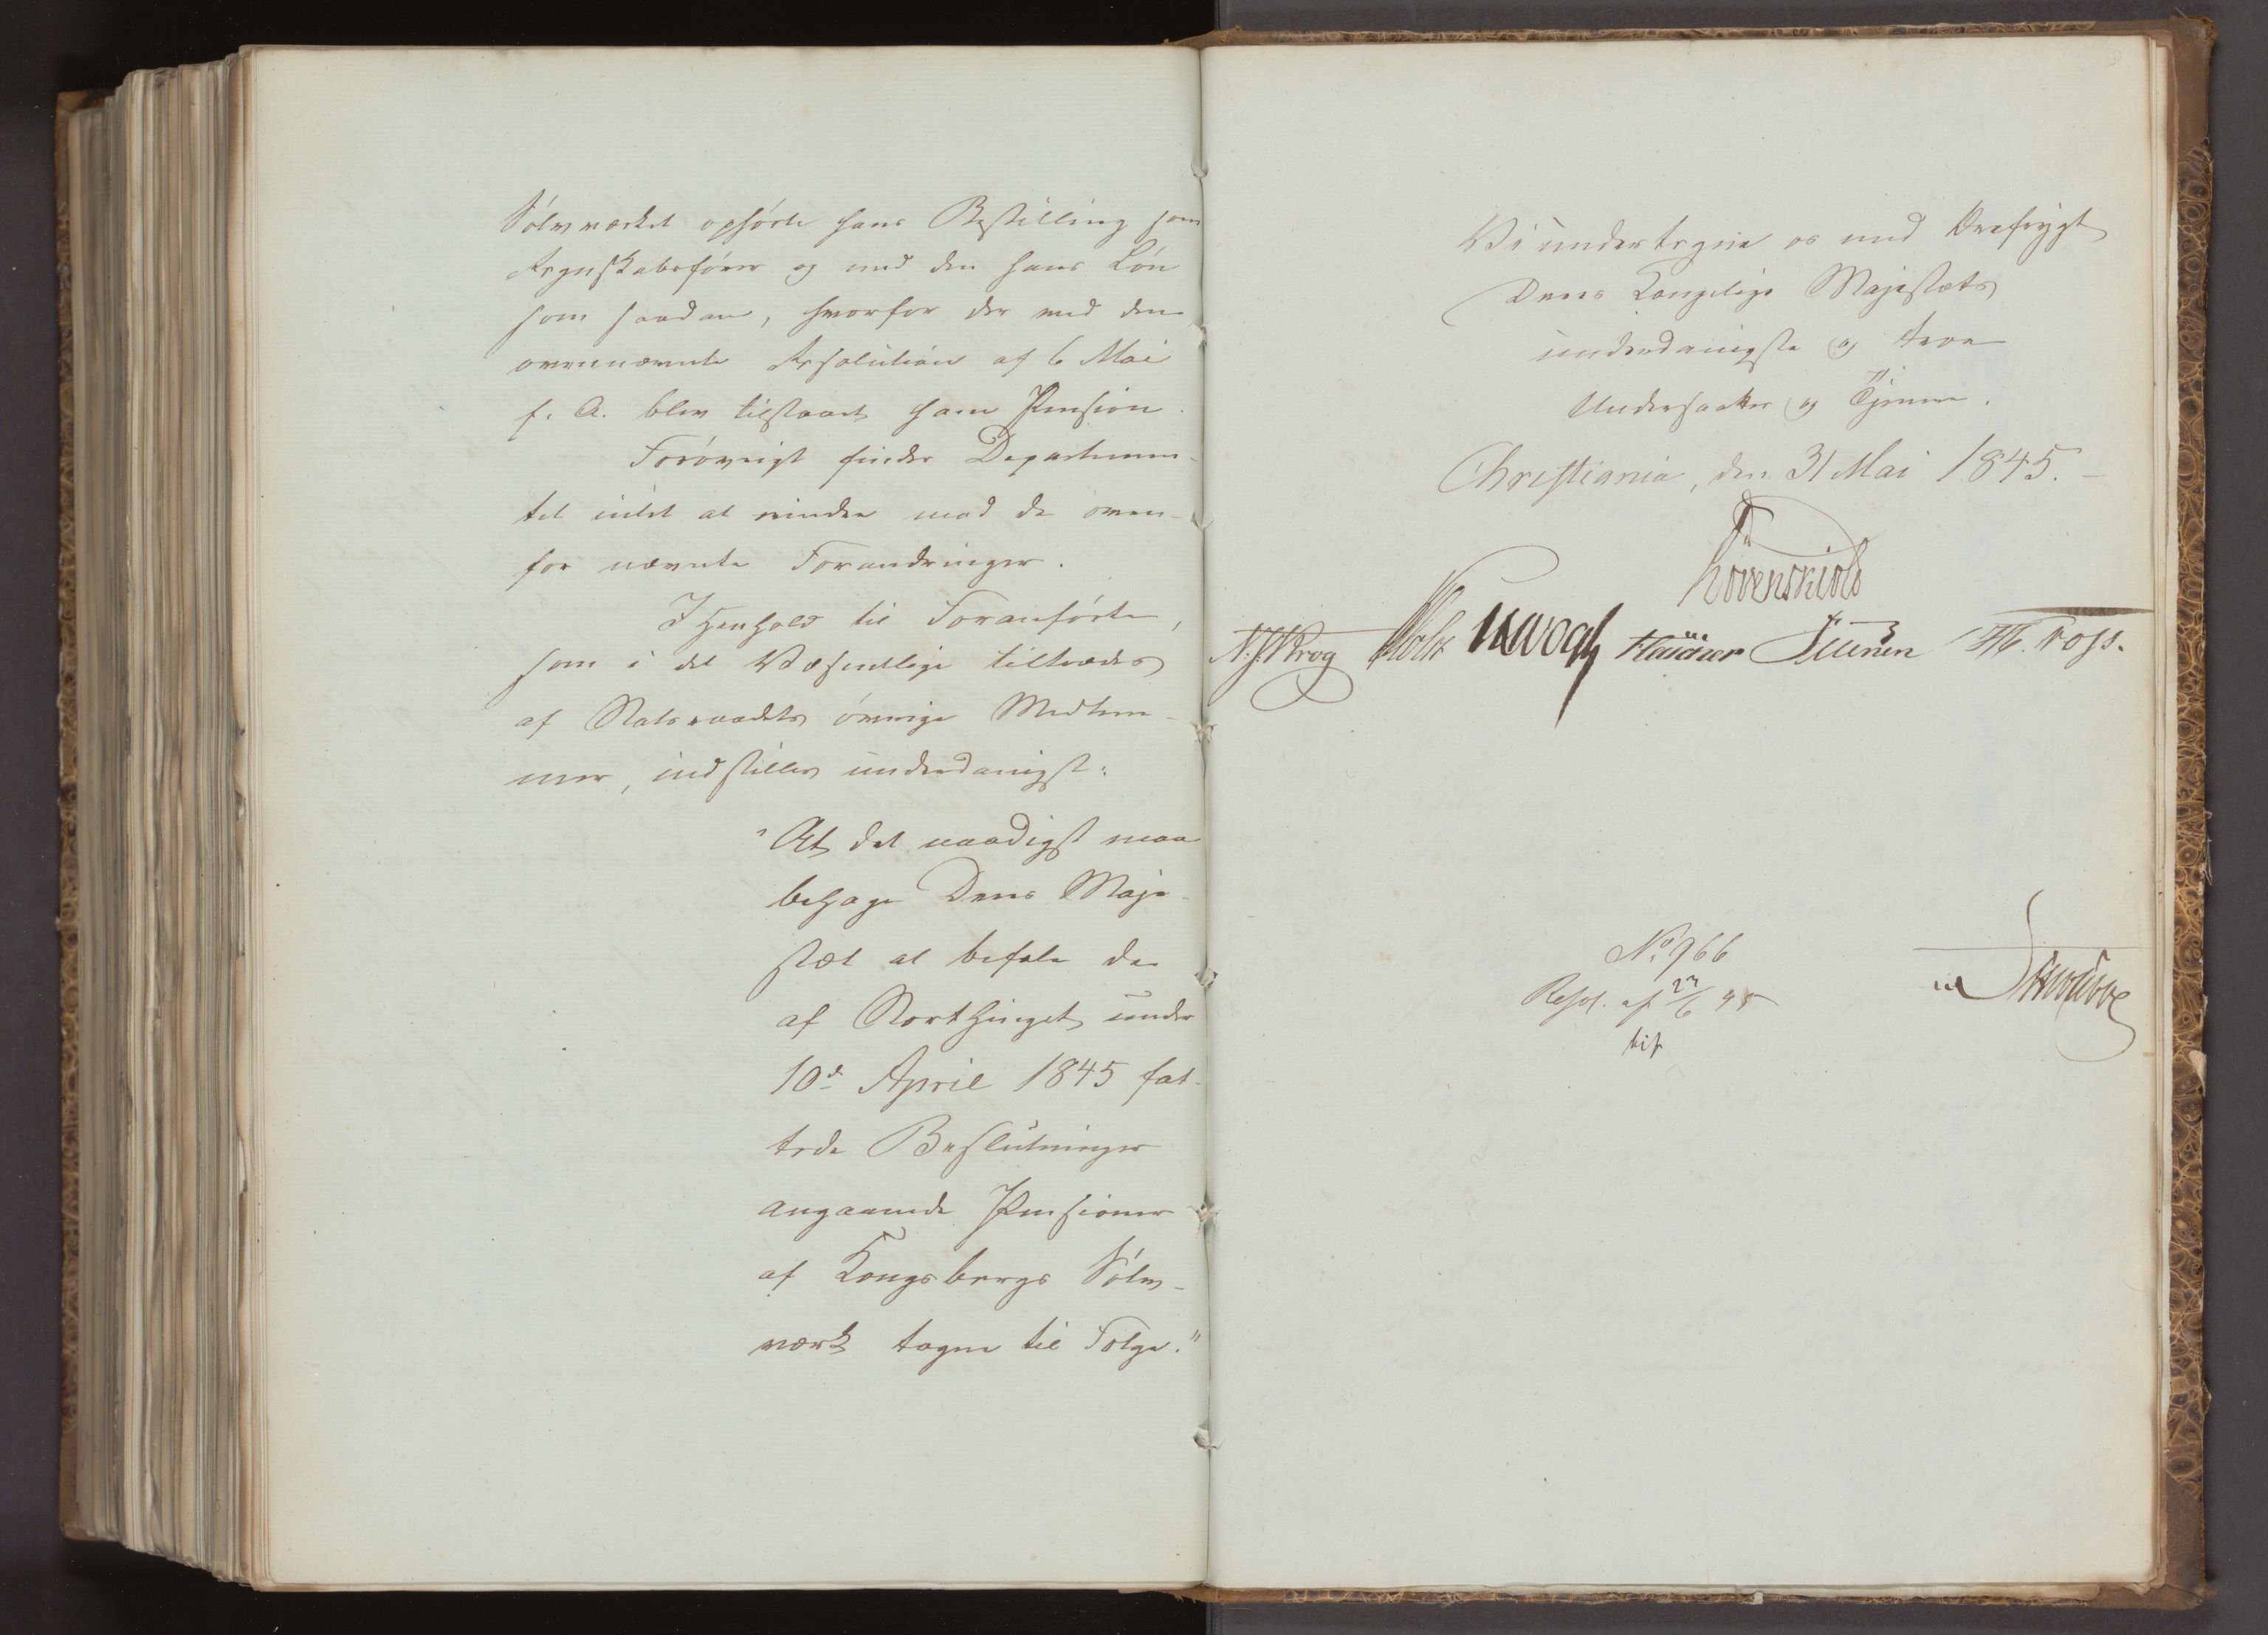 Sölvværket ophörte hans Bestilling som
Regnskabsförer og med den hans Lön
som saadan, hvorfor der ved den
ovennævnte Resolution af 6 Mai
f. A. blev tilstaaet ham Pension.
Forövrigt finder Departemen-
tet intet at erindre mod de oven-
for nævnte Forandringer.
I Henhold til Foranförte,
som i det Væsentlige tiltrædes
af Statsraadets övrige Medlem-
mer, indstilles underdanigst:
"At det naadigst maa
behage Deres Maje-
stæt at befale de
af Storthinget under
10de April 1845 fat-
tede Beslutninger
angaaende Pensioner
af Kongsbergs Sölv-
værk tagne til Fölge."
Vi undertegne os med Ærefrygt
Deres Kongelige Majestæts
underdanigste og troe
Undersaatter og Tjenere.
Christiania, den 31 Mai 1845.-
Lövenskiold
N. J. Krog Holst Vogt Sibbern Foss.
No 766
Resol. af 23/6 45